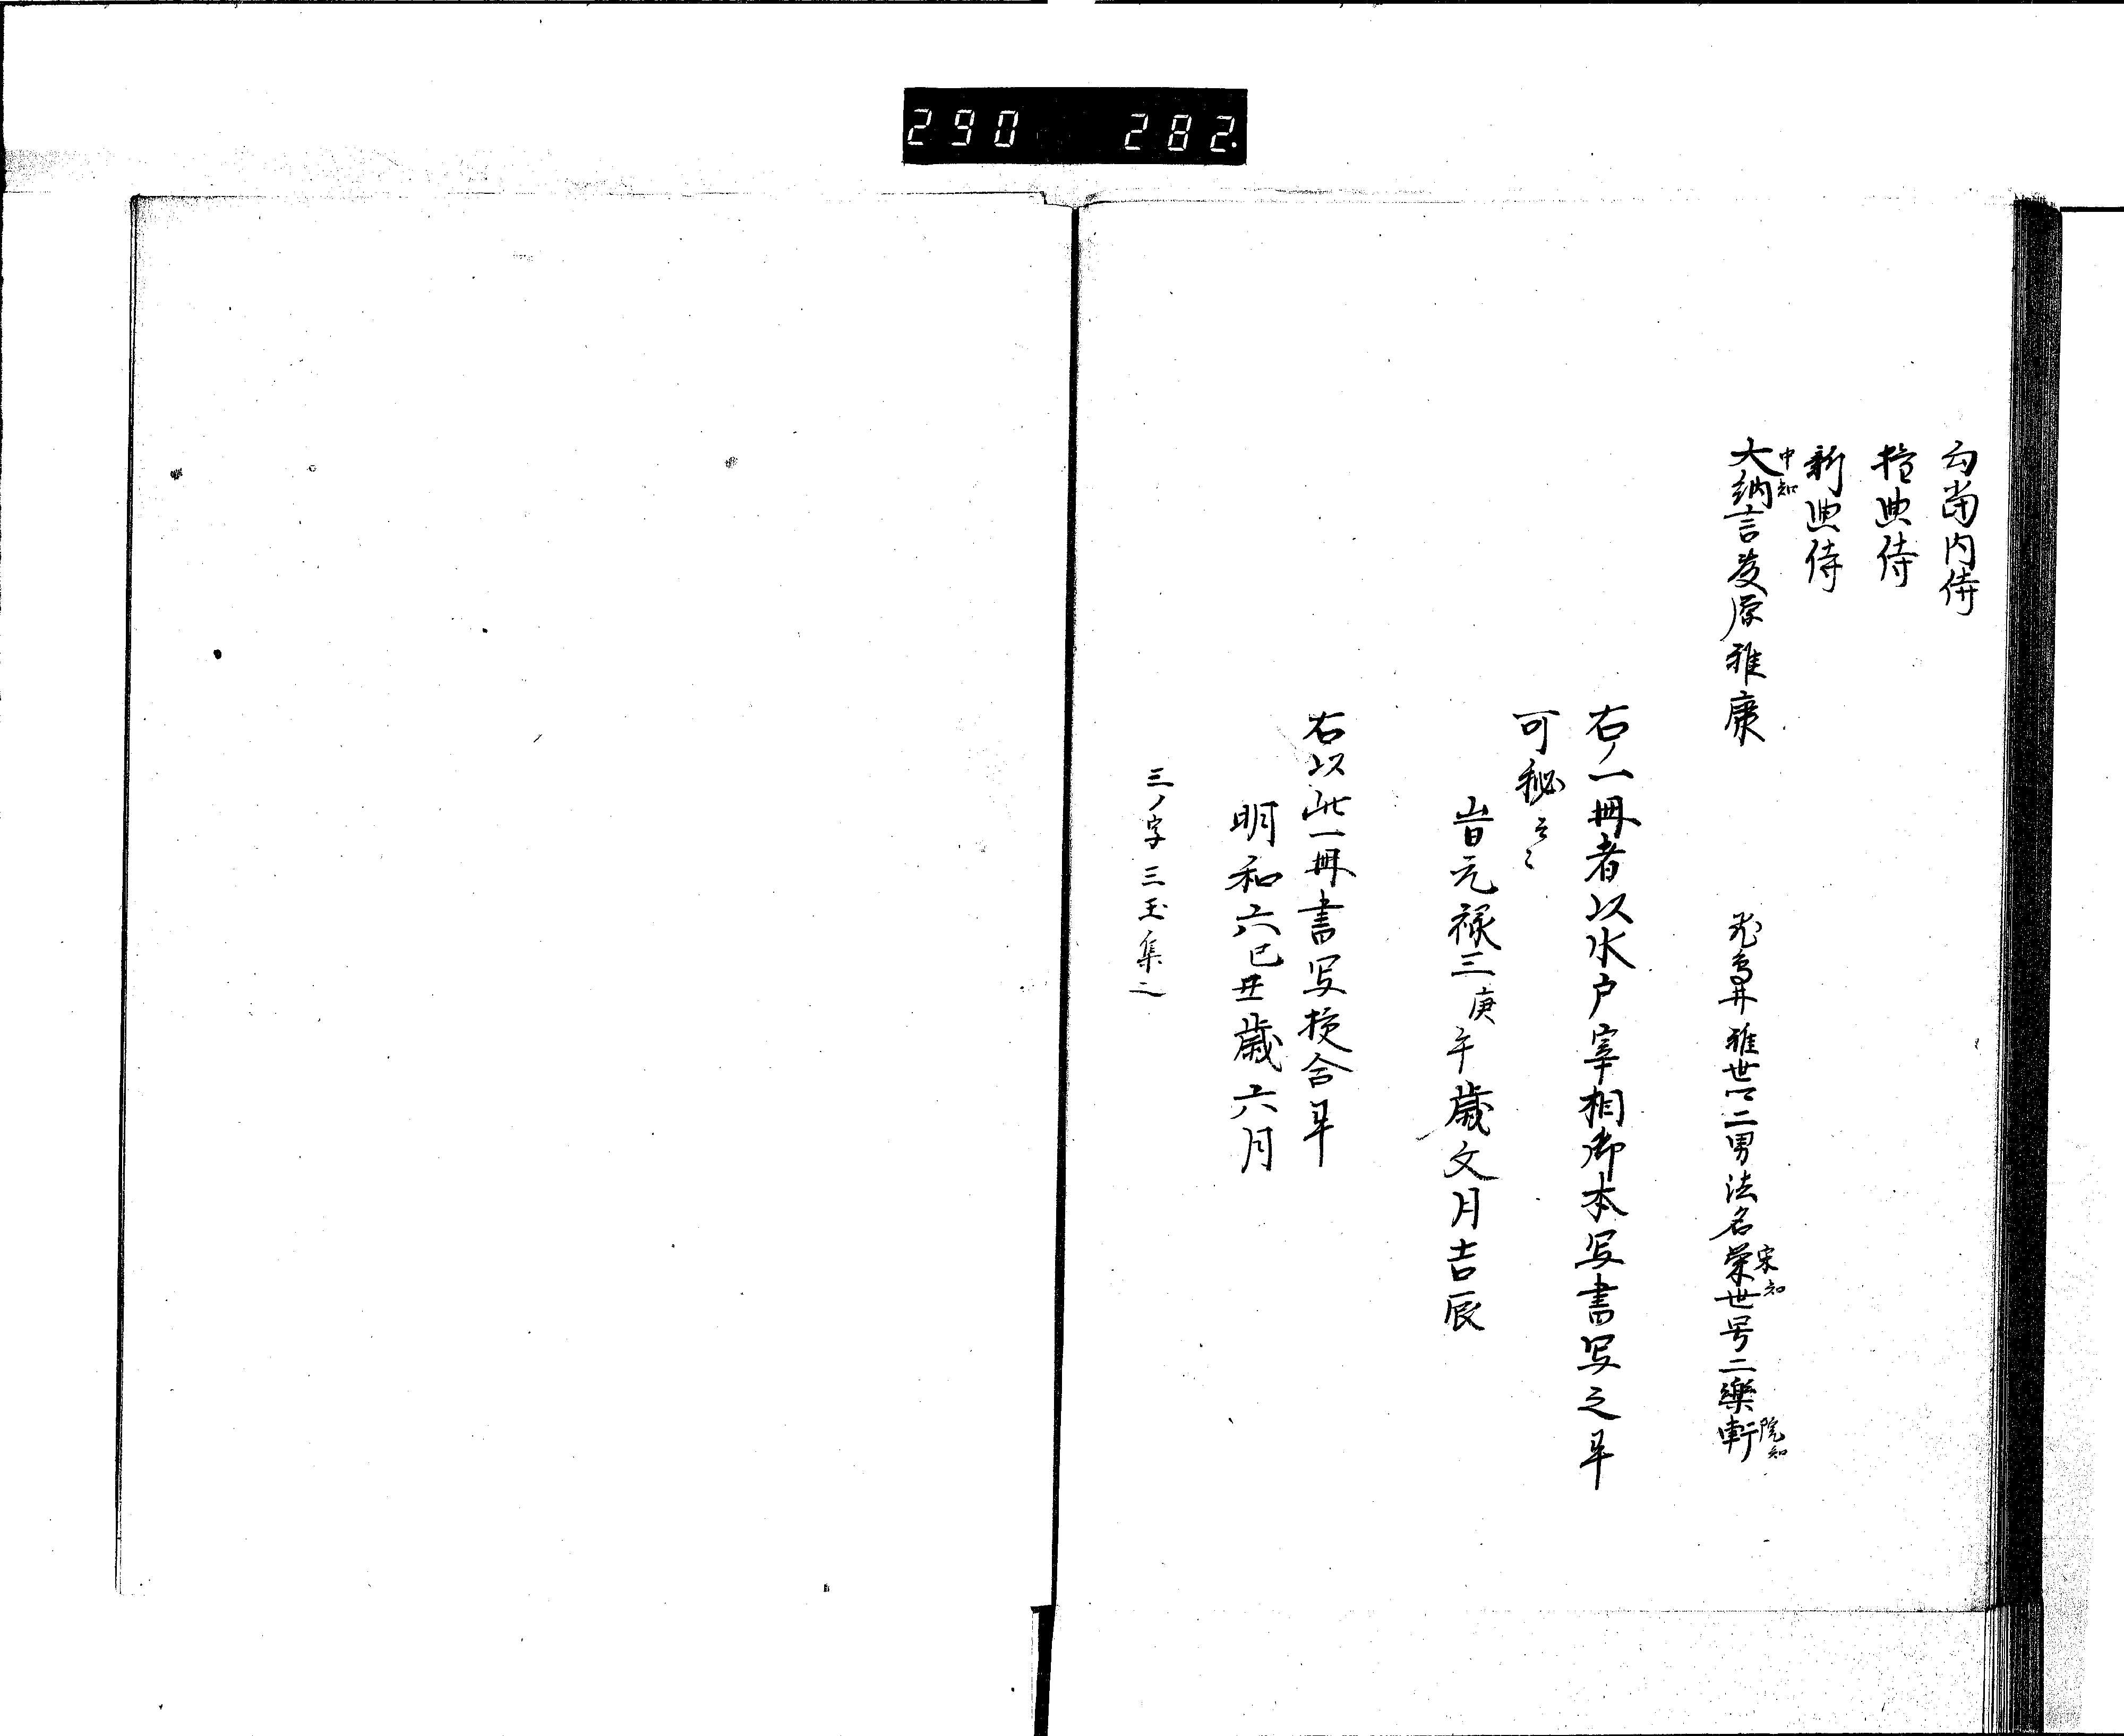 290 282.
勾当内侍
権典侍
新典侍
大納言藤原雅康 飛鳥井雅世公二男法名栄世号二楽軒
中知
宋知
院知
右ノ一冊者以水戸宰相御本写書写之畢
可秘云々
旹元禄三庚午歳文月吉辰
右以此一冊書写挍合畢
明和六己丑歳六月
三ノ字三玉集之